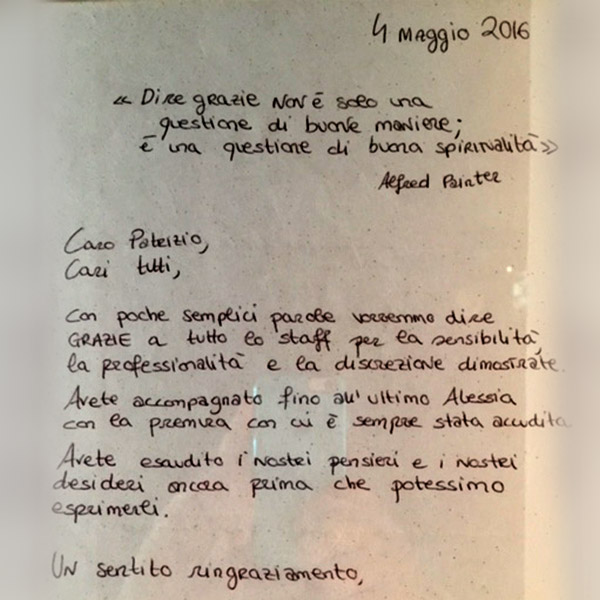 4 Maggio 2016
« Dire grazie non è solo una
questione di buone maniere;
è una questione di buona spiritualità »
Alfred Painter
Caro Patrizio,
Cari tutti,
Con poche semplici parole vorremmo dire
GRAZIE a tutto lo staff per la sensibilità,
la professionalità e la discrezione dimostrate.
Avete accompagnato fino all'ultimo Alessia
con la premura con cui è sempre stata accudita.
Avete esaudito i nostri pensieri e i nostri
desideri ancora prima che potessimo
esprimerli.
Un sentito ringraziamento,